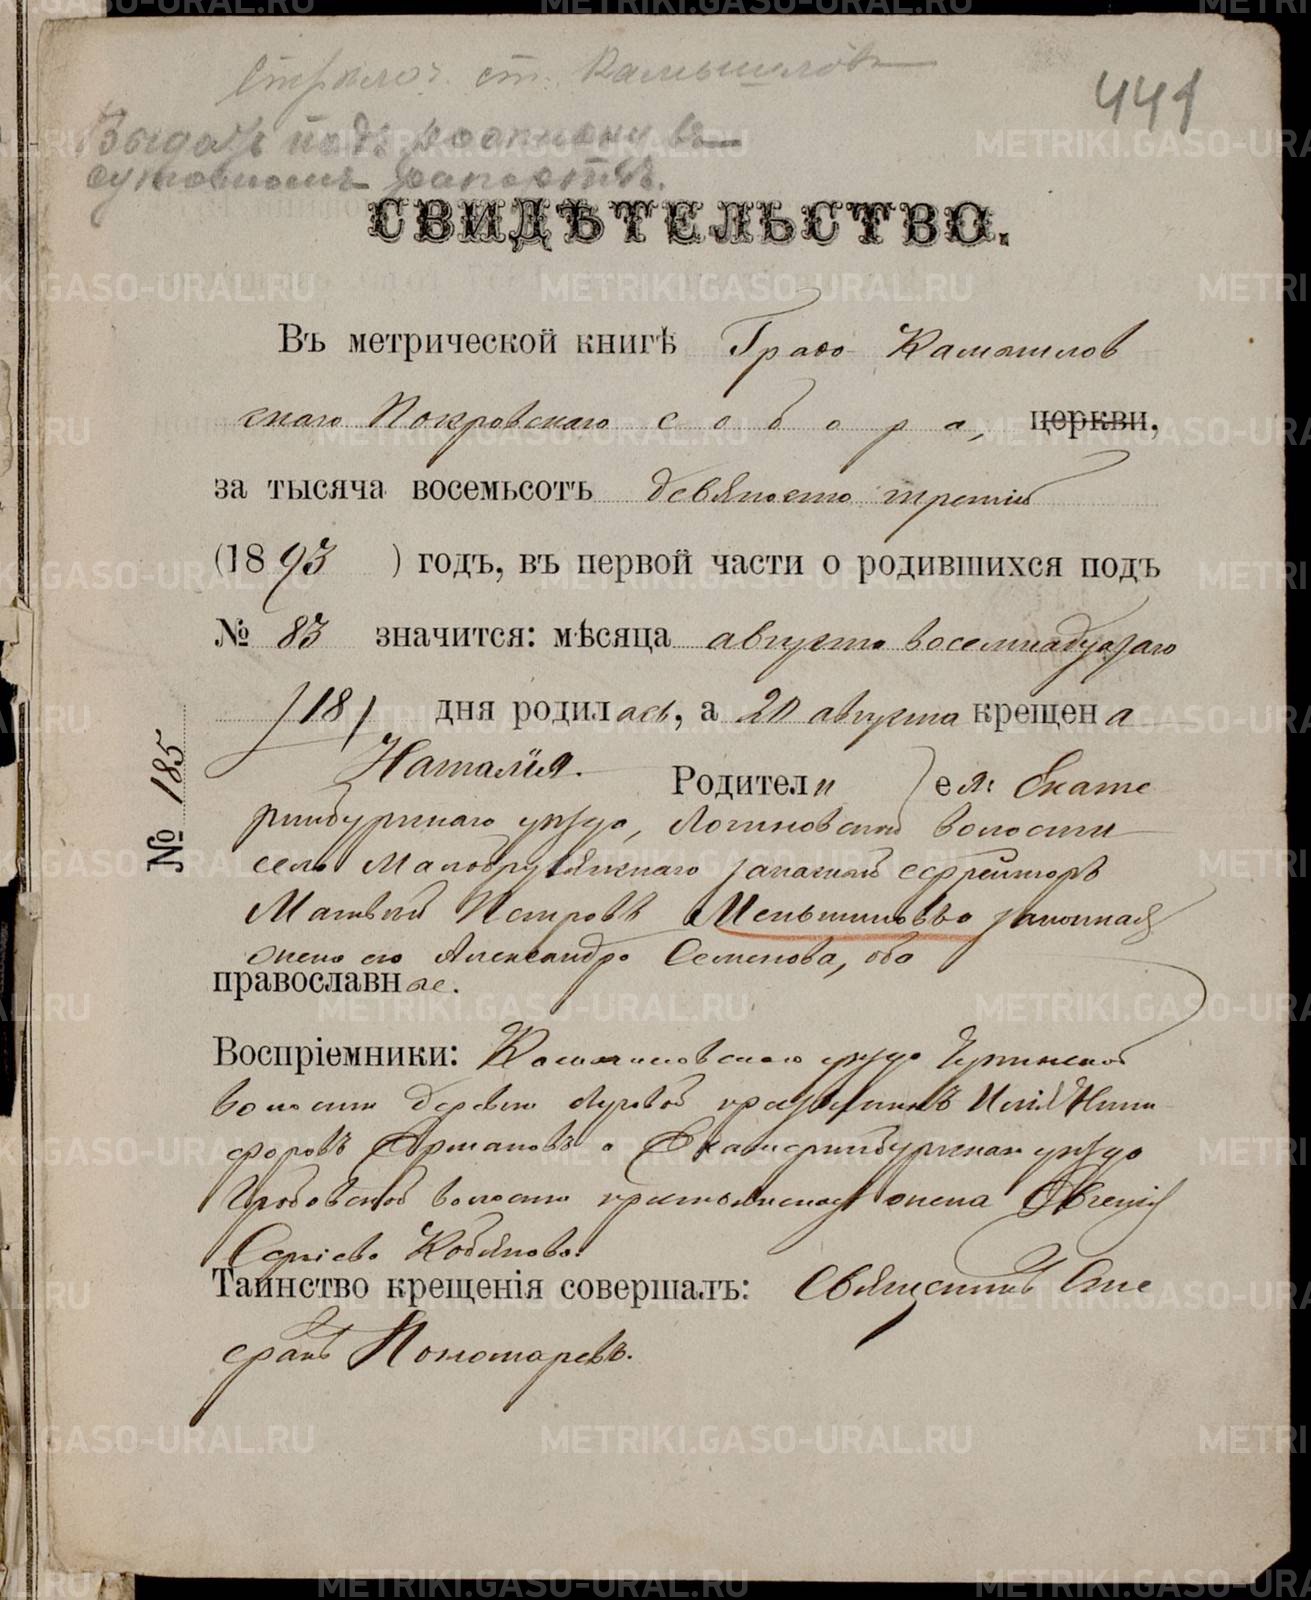 ст. Камышловъ
441
Выдать подъ росписку въ
рапортѣ.
СВИДѢТЕЛЬСТВО.
Въ метрической книгѣ Градо Камышлов
скаго Покровскаго собора, церкви,
за тысяча восемьсотъ девяносто третій
(1893) годъ, въ первой части о родившихся подъ
№ 83 значится: мѣсяца августа восемнадцатаго
/18/ дня родилась, а 20 августа крещена
Наталія. Родители ея: Екате
ринбургскаго уѣзда, Логиновской волости
села Малобрусянскаго запасный ефрейторъ
Матвѣй Петровъ Меньшиковъ и законная
жена его Александра Семенова, оба
православные.
Воспріемники: Камышловскаго уѣзда
волости деревни крестьянинъ Илія Ники
форовъ и Екатеринбургскаго уѣзда
Гробовской волости крестьянская жена Евгенія
Сергіева
Таинство крещенія совершалъ: Священникъ Сте
фанъ Пономаревъ.
№ 185
METRIKI.GASO-URAL.RU